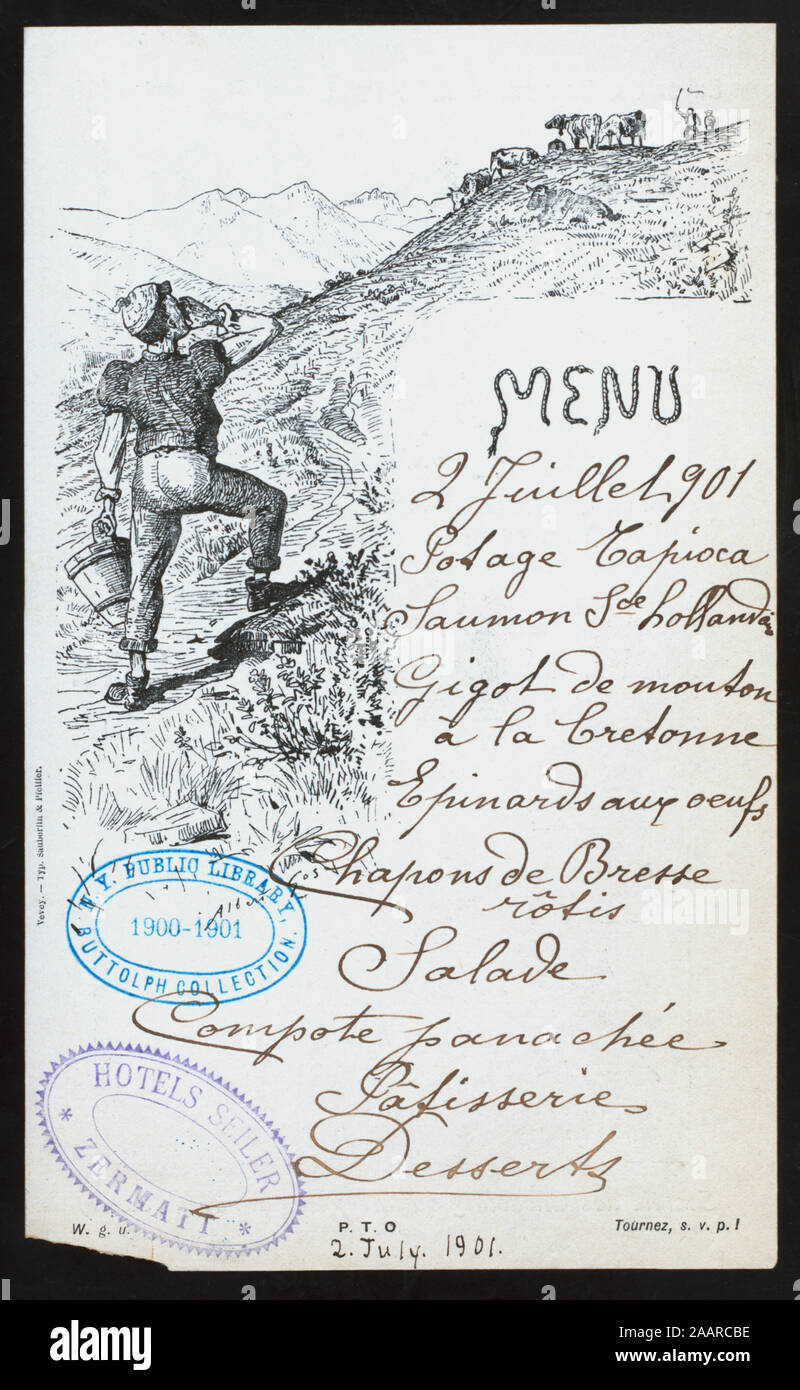 MENU
2 Juillet 901
Potage Tapioca
Saumon Sce hollandse
Gigot de mouton
à la bretonne
Epinards aux oeufs
Chapons de Bresse
rôtis
Salade
Compote panachée
Pâtisserie
Desserts
Vevey. — Typ. Säuberlin & Pfeiffer.
N. Y. PUBLIC LIBRARY,
1900-1901
BUTTOLPH COLLECTION.
HOTELS SEILER
* ZERMATT *
W. g. u.
P. T. O
Tournez, s. v. p. !
2. July. 1901.
alamy
Image ID: 2AARCBE
www.alamy.com